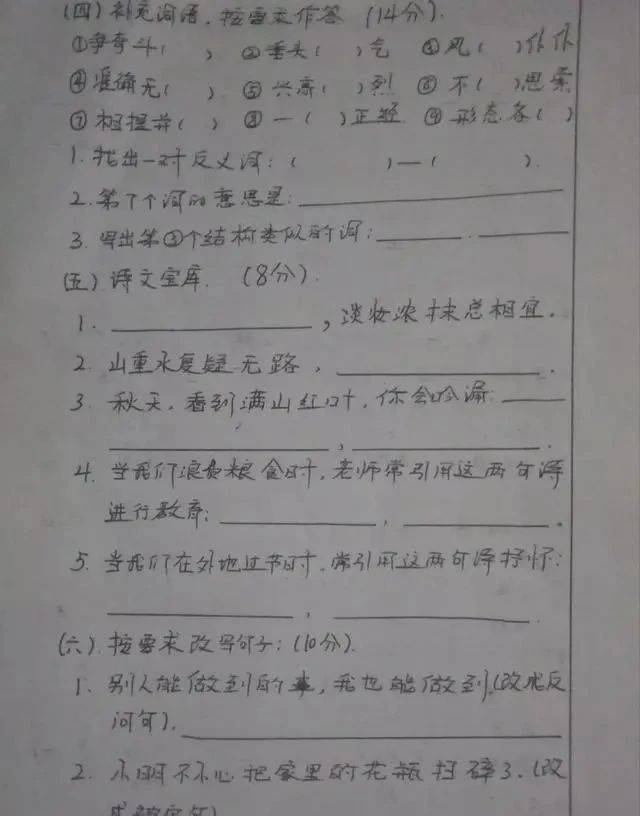 (四)补充词语,按要求作答 (14分).
①争奇斗( ) ②垂头( )气 ③风( )仆仆
④准确无( ) ⑤兴高( )烈 ⑥不( )思索
⑦相提并( ) ⑧一( )正经 ⑨形态各( )
1.找出一对反义词:( )—( ).
2.第7个词的意思是:
3.写出第③个结构类似的词:
(五)课文宝库. (8分).
1. ,淡妆浓抹总相宜.
2.山重水复疑无路, .
3.秋天,看到满山红叶,你会吟诵:
, .
4.当我们浪费粮食时,老师常引用这两句诗
进行教育: , .
5.当我们在外地过节时,常引用这两句诗抒怀:
, .
(六)按要求改写句子:(10分).
1.别人能做到的事,我也能做到.(改成反
问句).
2.小明不小心把家里的花瓶打碎了.(改
成被字句)